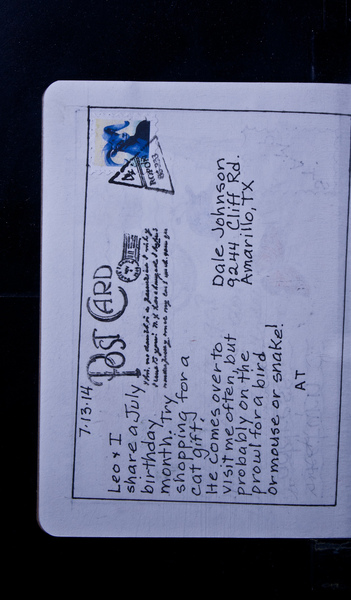 7-13-14
POST CARD
Leo & I
share a July
birthday
month. Try
shopping for a
cat gift,
He comes over to
visit me often, but
probably on the
prowl for a bird
or mouse or snake!
AT
Dale Johnson
9244 Cliff Rd.
Amarillo, TX